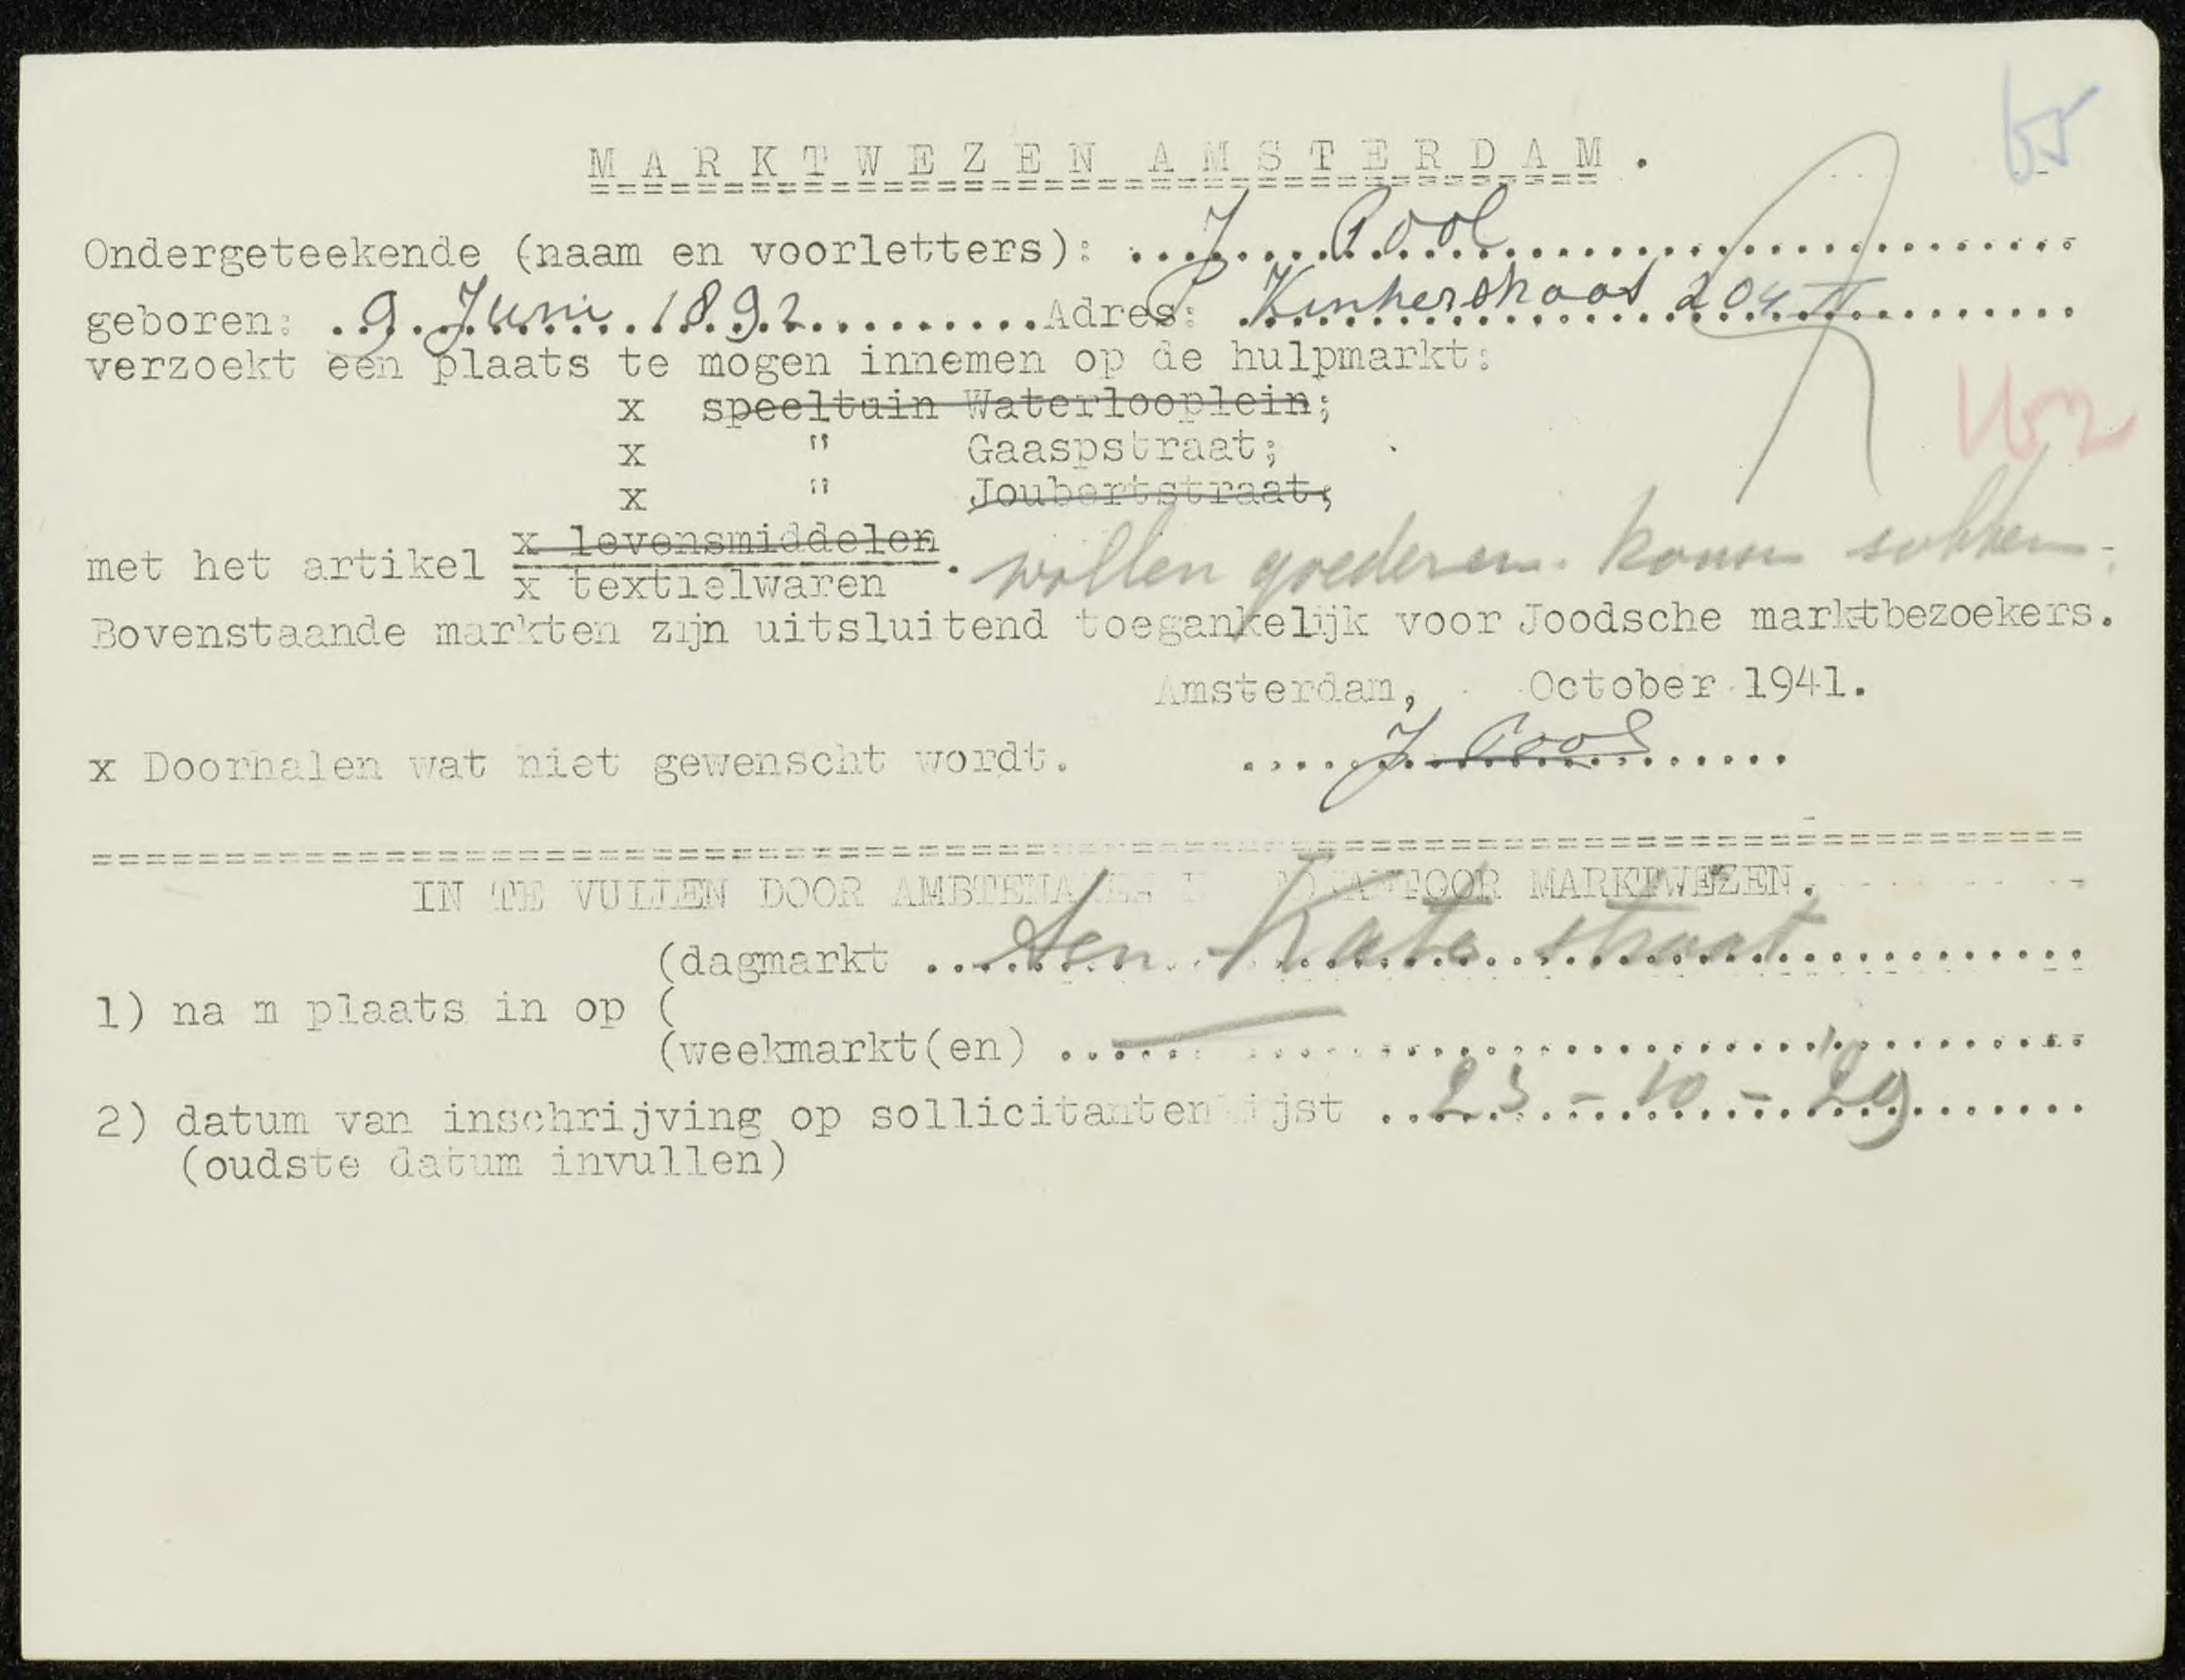 65
MARKTWEZEN AMSTERDAM.
Ondergeteekende (naam en voorletters): J Pool
geboren: 9 Juni 1892 Adres: Kinkerstraat 204 II
verzoekt een plaats te mogen innemen op de hulpmarkt:
x speeltuin Waterlooplein;
x " Gaaspstraat;
x " Joubertstraat;
x levensmiddelen
met het artikel . wollen goederen. sokken
x textielwaren
Bovenstaande markten zijn uitsluitend toegankelijk voor Joodsche marktbezoekers.
Amsterdam, October 1941.
x Doorhalen wat niet gewenscht wordt. J Pool
IN TE VULLEN DOOR AMBTENAREN MARKTWEZEN.
(dagmarkt ten Kate straat
1) na m plaats in op (
(weekmarkt(en)
2) datum van inschrijving op sollicitantenlijst 23-10-29
(oudste datum invullen)